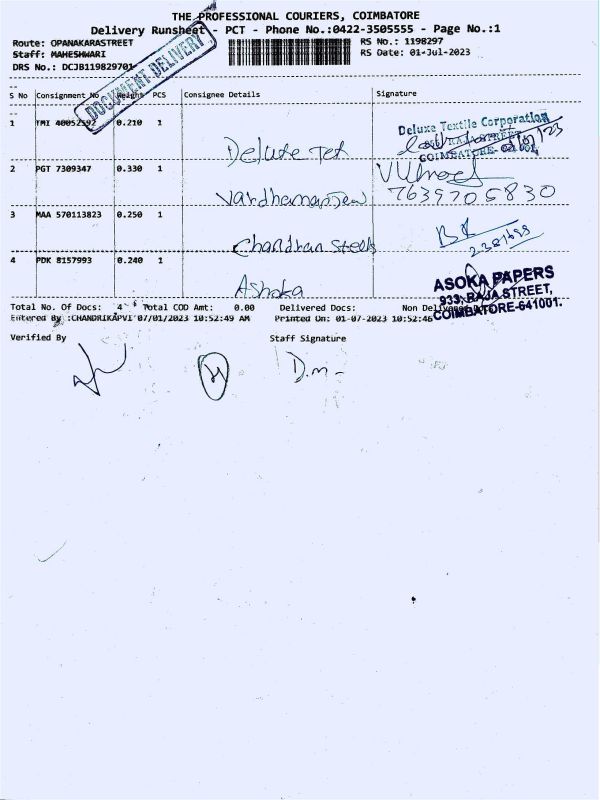 THE PROFESSIONAL COURIERS, COIMBATORE
Delivery Runsheet - PCT - Phone No.:0422-3505555 - Page No.:1
Route: OPANAKARASTREET
RS No.: 1198297
Staff: MAHESHWARI
RS Date: 01-Jul-2023
DRS No.: DCJB119829701
DOCUMENT DELIVERY
S No Consignment No Weight PCS Consignee Details Signature
1 TMI 40052592 0.210 1
Deluxe Textile Corporation
RAJA STREET
COIMBATORE-
Deluxe Tex
2 PGT 7309347 0.330 1
7639705830
Vardhaman
3 MAA 570113823 0.250 1
Chandran Steels
4 PDK 8157993 0.240 1
Ashoka
ASOKA PAPERS
933, RAJA STREET,
COIMBATORE-641001.
Total No. Of Docs: 4 Total COD Amt: 0.00 Delivered Docs: Non
Entered By :CHANDRIKAPVI 07/01/2023 10:52:49 AM Printed On: 01-07-2023 10:52:46
Verified By Staff Signature
D.m-